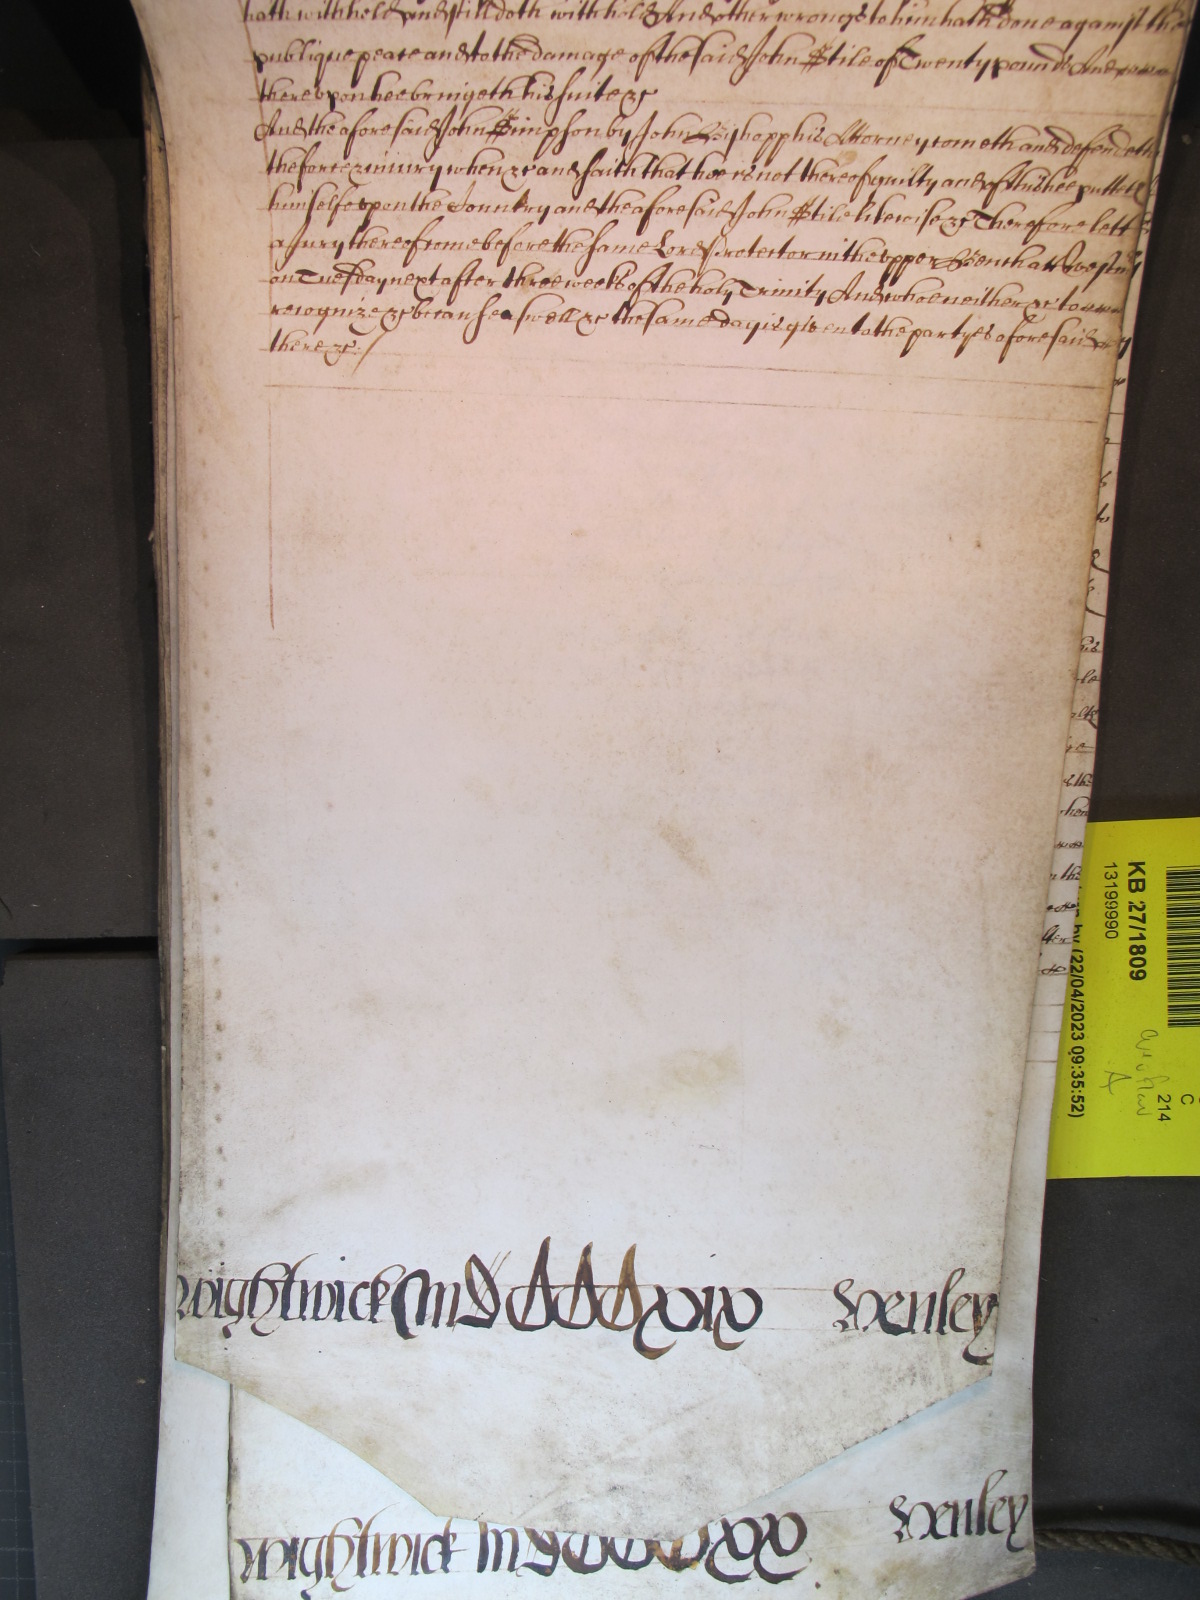 hath withheld and still doth withhold And other wrongs to him hath done against the
publique peace and to the damage of the said John Stile of Twenty pounds And
thereupon hee bringeth his suite &c
And the aforesaid John Simpson by John Byshopp his Attorney cometh and defendeth
the force & iniury when &c and saith that hee is not thereof guilty and of this hee putteth
himselfe upon the Countrey and the aforesaid John Stile likewise &c Therefore lett
a Jury thereof come before the same Lord Protector in the upper Bench att Westmr
on Tuesday next after three weeks of the holy Trinity And who neither &c to
recognize &c because aswell &c the same day is given to the partyes aforesaid
there &c /
Wightwick m D CCCC xix Henley
Wightwick m D CCCC xx Henley
KB 27/1809
13199990
(22/04/2023 09:35:52)
214
C
A